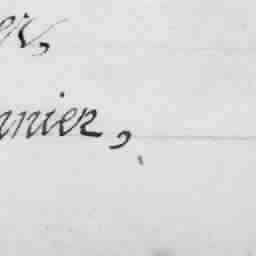 er,
nnier,